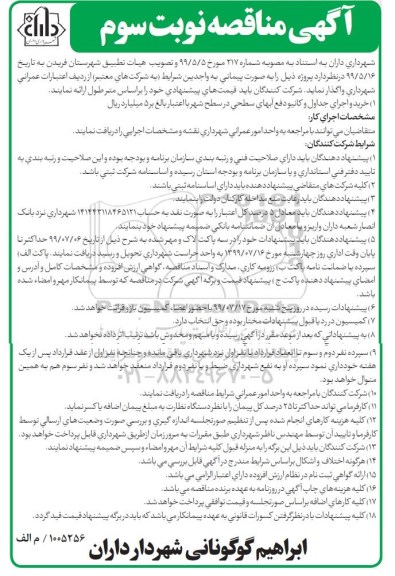 آگهی مناقصه نوبت سوم
شهرداری داران به استناد به مصوبه شماره ۲۱۷ مورخ ۹۹/۵/۵ و تصویب هیات تطبیق شهرستان فریدن به تاریخ
۹۹/۵/۱۶ در نظر دارد پروژه ذیل را به صورت پیمانی به واجدین شرایط (به شرکت های معتبر) از ردیف اعتبارات عمرانی
شهرداری واگذار نماید. شرکت کنندگان باید قیمت های پیشنهادی خود را براساس متر طول ارائه نمایند.
۱) خرید و اجرای جداول و کانیو دفع آبهای سطحی در سطح شهر با اعتبار بالغ بر ۵ میلیارد ریال
مشخصات اجرای کار:
متقاضیان می توانند با مراجعه به واحد امور عمرانی شهرداری نقشه و مشخصات اجرایی را دریافت نمایند.
شرایط شرکت کنندگان:
۱) پیشنهاددهندگان باید دارای صلاحیت فنی و رتبه بندی سازمان برنامه و بودجه بوده و این صلاحیت و رتبه بندی به
تایید دفتر فنی استانداری و یا سازمان برنامه و بودجه استان رسیده و اساسنامه شرکت ثبتی باشد.
۲) کلیه شرکت های متقاضی پیشنهاد دهنده باید دارای اساسنامه ثبتی باشند.
۳) پیشنهاددهندگان باید رعایت منع مداخله کارکنان دولت را بنمایند.
۴) پیشنهاددهندگان باید معادل ۵ درصد کل اعتبار را به صورت نقد به حساب شهرداری نزد بانک
انصار شعبه داران واریز و یا معادل آن ضمانتنامه بانکی ضمیمه پیشنهاد خود بنمایند.
۵) پیشنهاددهندگان باید پیشنهادات خود را در سه پاکت لاک و مهر شده به شرح ذیل از تاریخ ۹۹/۰۷/۰۶ حداکثر تا
پایان وقت اداری روز چهارشنبه مورخ ۱۳۹۹/۰۷/۱۶ به واحد حراست شهرداری تحویل و رسید دریافت نمایند. پاکت الف)
سپرده یا ضمانت نامه پاکت ب) رزومه کاری، مدارک و اسناد مناقصه، گواهی ارزش افزوده و مشخصات کامل و آدرس و
امضای پیشنهاد دهنده پاکت ج) پیشنهاد قیمت و برگه آگهی شرکت در مناقصه که توسط پیمانکار مهر و امضاء شده
باشد.
۶) پیشنهادات رسیده در روز پنج شنبه مورخ ۹۹/۰۷/۱۷ با حضور اعضاء کمیسیون باز و قرائت خواهد شد.
۷) کمیسیون در رد یا قبول پیشنهادات مختار بوده و حق انتخاب دارد.
۸) به پیشنهاداتی که بعد از موعد مقرر در آگهی رسیده و یا مبهم و مخدوش باشد ترتیب اثر داده نخواهد شد.
۹) سپرده نفر دوم و سوم تا انعقاد قرارداد با نفر اول نزد شهرداری باقی مانده و چنانچه نفر اول از عقد قرارداد پس از یک
هفته خودداری نمود سپرده او به نفع شهرداری ضبط و با نفر دوم قرارداد منعقد خواهد شد و نفر سوم هم به همین
منوال خواهد بود.
۱۰) شرکت کنندگان با مراجعه به واحد امور عمرانی شرایط مناقصه را دریافت نمایند.
۱۱) کارفرما می تواند حداکثر تا ۲۵ درصد کل پیمان را با نظر دستگاه نظارت به مبلغ پیمان اضافه یا کسر نماید.
۱۲) کلیه هزینه کارهای انجام شده پس از تنظیم صورتجلسه اندازه گیری و بررسی صورت وضعیت های ارسالی توسط
کارفرما و تایید آن توسط مهندس ناظر شهرداری طبق مقررات به مرور زمان از طریق شهرداری قابل پرداخت خواهد بود.
۱۳) شرکت کنندگان باید ذیل این برگه را به منزله قبول کلیه شرایط آن مهر و امضاء و سپس ضمیمه پیشنهاد نمایند.
۱۴) هرگونه اختلاف و اشکال براساس شرایط مندرج در آگهی قابل بررسی می باشد.
۱۵) ارائه گواهی ثبت نام در نظام ارزش افزوده دارای اعتبار الزامی می باشد.
۱۶) کلیه هزینه های چاپ آگهی در روزنامه به عهده برنده مناقصه می باشد.
۱۷) کلیه کارهای اضافه براساس صورتجلسه و قیمت توافقی پرداخت خواهد شد.
۱۸) کلیه پیشنهادات با در نظر گرفتن کسورات قانونی به عهده پیمانکار می باشد که باید در برگه پیشنهاد قیمت قید گردد.
۱۰۰۵۲۵۶ / م الف
ابراهیم گوگونانی شهردار داران